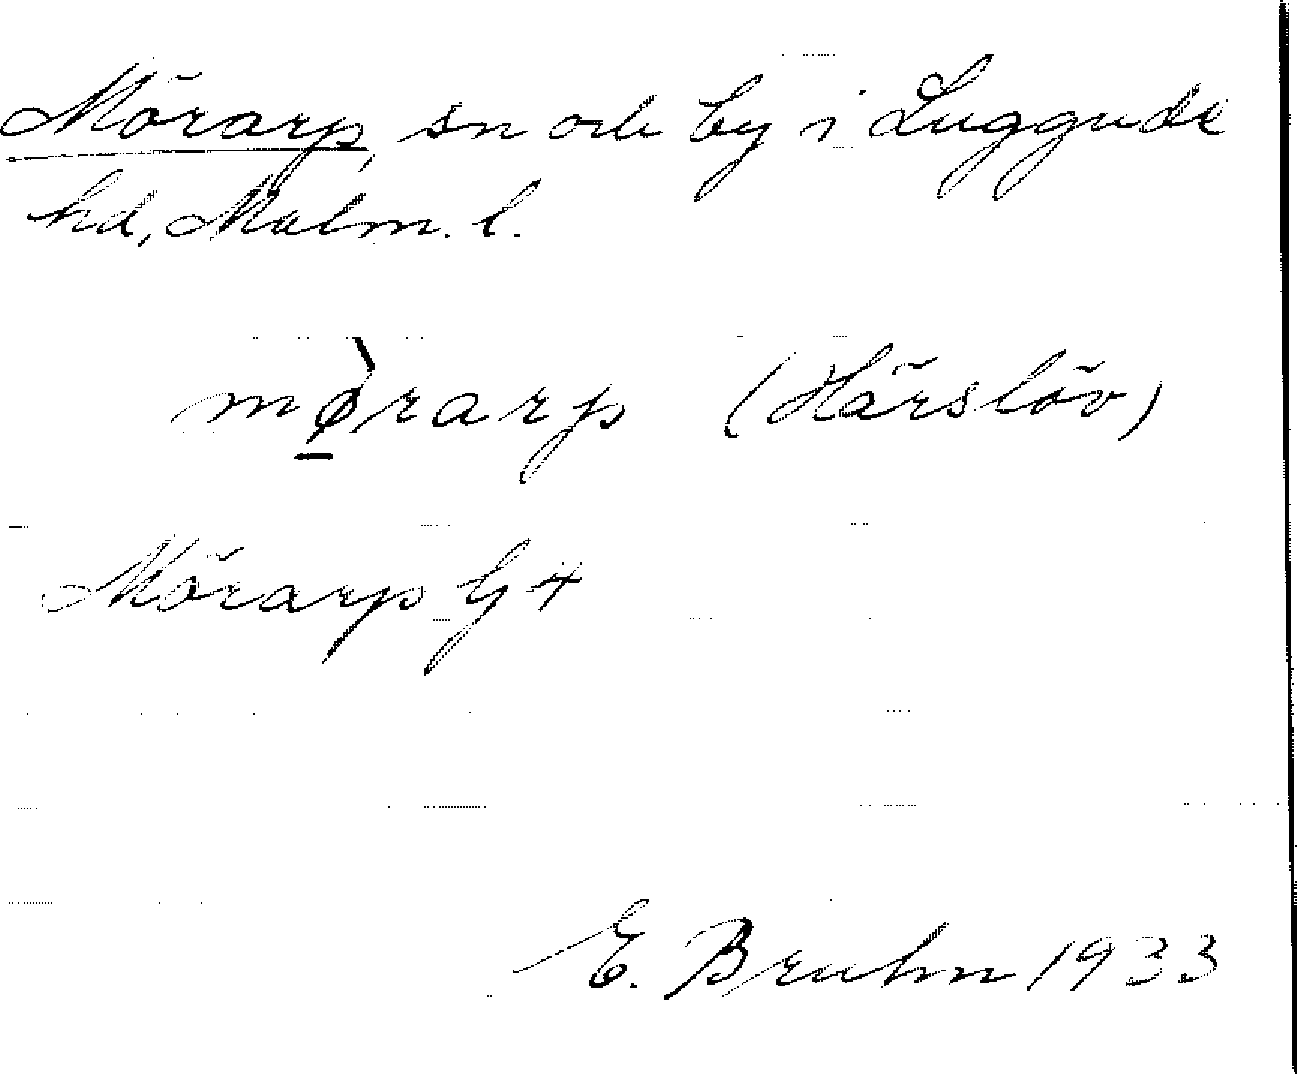 Mörarp, sn och by i Luggude
hd, Malm. l.
mø̱̀rarp (Härslöv)
Mörarp G 4
E. Bruhn 1933